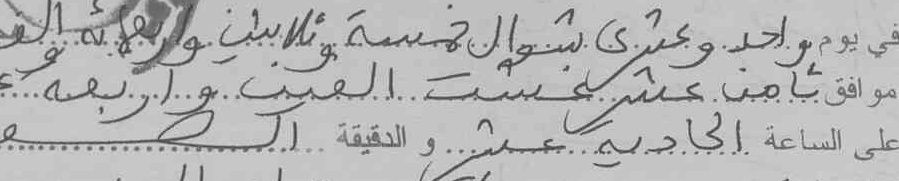 في يوم واحد وعشري شوال خمسة وثلاثين واربعمائة الف
موافق ثامن عشر غشت الفين واربعة
على الساعة الحادية عشر و الدقيقة